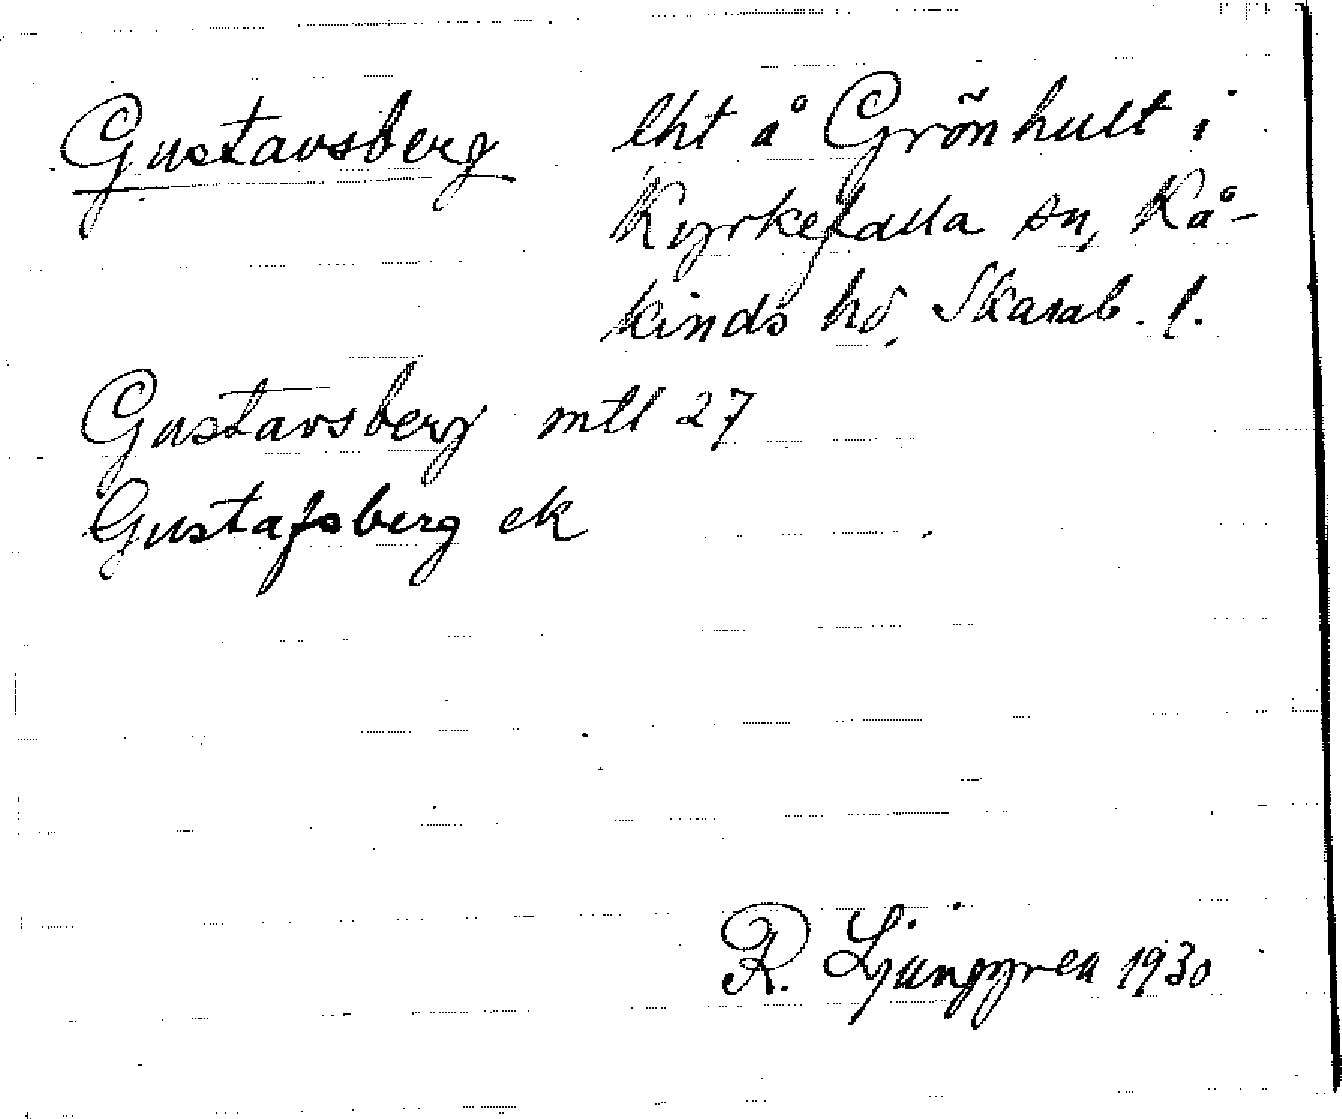 Gustavsberg lht å Grönhult i
Kyrkefalla sn, Kå-
kinds hd, Skarab. l.
Gustavsberg mtl 27
Gustafsberg ek
R. Ljunggren 1930